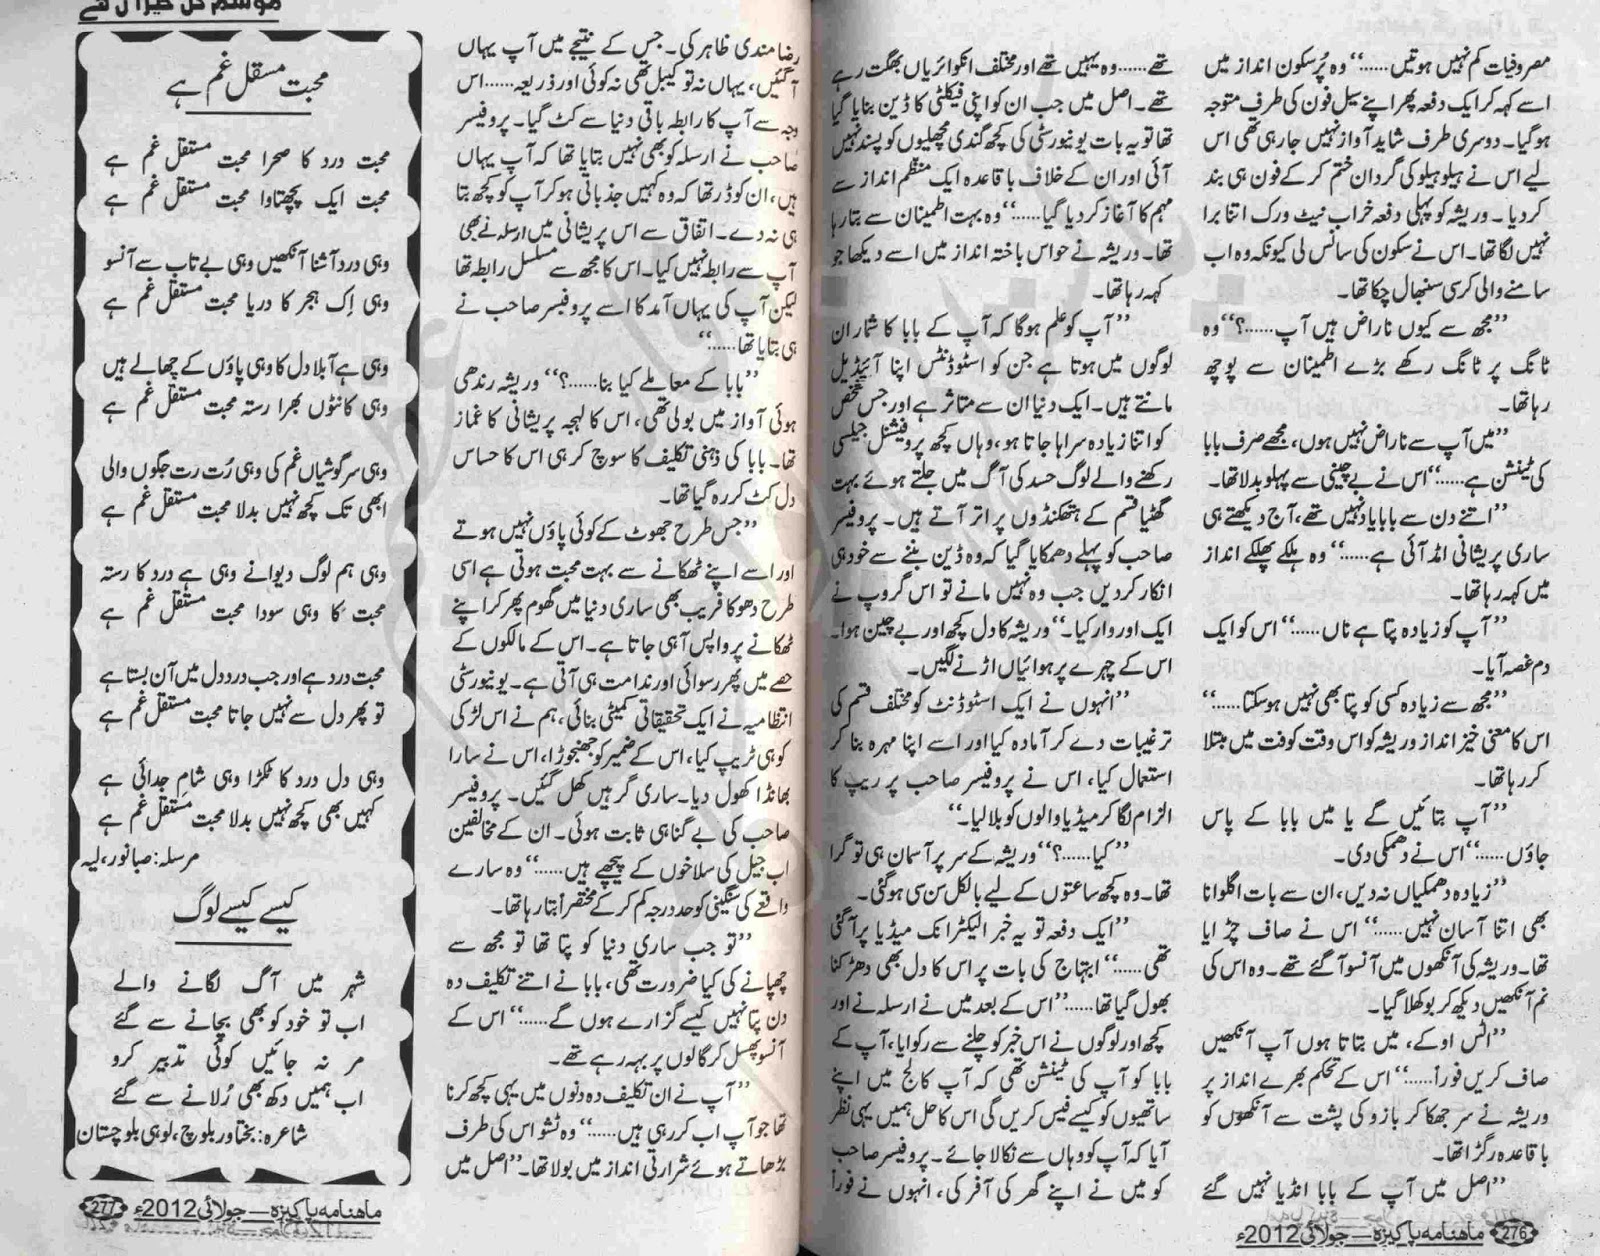 مصروفیات کم نہیں ہوتیں……‘‘ وہ پُرسکون انداز میں
اسے کہہ کر ایک دفعہ پھر اپنے سیل فون کی طرف متوجہ
ہوگیا۔ دوسری طرف شاید آواز نہیں جارہی تھی اس
لیے اس نے ہیلو ہیلو کی گردان ختم کر کے فون ہی بند
کردیا۔ وریشہ کو پہلی دفعہ خراب نیٹ ورک اتنا برا
نہیں لگا تھا۔ اس نے سکون کی سانس لی کیونکہ وہ اب
سامنے والی کرسی سنبھال چکا تھا۔
’’مجھ سے کیوں ناراض ہیں آپ……؟‘‘ وہ
ٹانگ پر ٹانگ رکھے بڑے اطمینان سے پوچھ
رہا تھا۔
’’میں آپ سے ناراض نہیں ہوں، مجھے صرف بابا
کی ٹینشن ہے……‘‘ اس نے بے چینی سے پہلو بدلا تھا۔
’’اتنے دن سے بابا یاد نہیں تھے، آج دیکھتے ہی
ساری پریشانی امڈ آئی ہے……‘‘ وہ ہلکے پھلکے انداز
میں کہہ رہا تھا۔
’’آپ کو زیادہ پتا ہے ناں……‘‘ اس کو ایک
دم غصہ آیا۔
’’مجھ سے زیادہ کسی کو پتا بھی نہیں ہوسکتا……‘‘
اس کا معنی خیز انداز وریشہ کو اس وقت کوفت میں مبتلا
کر رہا تھا۔
’’آپ بتائیں گے یا میں بابا کے پاس
جاؤں……‘‘ اس نے دھمکی دی۔
’’زیادہ دھمکیاں نہ دیں، ان سے بات اگلوانا
بھی اتنا آسان نہیں……‘‘ اس نے صاف چڑایا
تھا۔ وریشہ کی آنکھوں میں آنسو آگئے تھے۔ وہ اس کی
نم آنکھیں دیکھ کر بوکھلا گیا۔
’’اٹس اوکے، میں بتاتا ہوں آپ آنکھیں
صاف کریں فوراً……‘‘ اس کے تحکم بھرے انداز پر
وریشہ نے سر جھکا کر بازو کی پشت سے آنکھوں کو
باقاعدہ رگڑا تھا۔
’’اصل میں آپ کے بابا انڈیا نہیں گئے
تھے……وہ یہیں تھے اور مختلف انکوائریاں بھگت رہے
تھے۔ اصل میں جب ان کو اپنی فیکلٹی کا ڈین بنایا گیا
تھا تو یہ بات یونیورسٹی کی کچھ گندی مچھلیوں کو پسند نہیں
آئی اور ان کے خلاف باقاعدہ ایک منظم انداز سے
مہم کا آغاز کردیا گیا……‘‘ وہ بہت اطمینان سے بتا رہا
تھا۔ وریشہ نے حواس باختہ انداز میں اسے دیکھا جو
کہہ رہا تھا۔
’’آپ کو علم ہوگا کہ آپ کے بابا کا شمار ان
لوگوں میں ہوتا ہے جن کو اسٹوڈنٹس اپنا آئیڈیل
مانتے ہیں۔ ایک دنیا ان سے متاثر ہے اور جس شخص
کو اتنا زیادہ سراہا جاتا ہو، وہاں کچھ پروفیشنل جیلسی
رکھنے والے لوگ حسد کی آگ میں جلتے ہوئے بہت
گھٹیا قسم کے ہتھکنڈوں پر اتر آتے ہیں۔ پروفیسر
صاحب کو پہلے دھمکایا گیا کہ وہ ڈین بننے سے خود ہی
انکار کردیں جب وہ نہیں مانے تو اس گروپ نے
ایک اور وار کیا۔‘‘ وریشہ کا دل کچھ اور بے چین ہوا۔
اس کے چہرے پر ہوائیاں اڑنے لگیں۔
’’انہوں نے ایک اسٹوڈنٹ کو مختلف قسم کی
ترغیبات دے کر آمادہ کیا اور اسے اپنا مہرہ بنا کر
استعمال کیا، اس نے پروفیسر صاحب پر ریپ کا
الزام لگا کر میڈیا والوں کو بلالیا۔‘‘
’’کیا……؟‘‘ وریشہ کے سر پر آسمان ہی تو گرا
تھا۔ وہ کچھ ساعتوں کے لیے بالکل سن سی ہوگئی۔
’’ایک دفعہ تو یہ خبر الیکٹرانک میڈیا پر آگئی
تھی……‘‘ ابتہاج کی بات پر اس کا دل بھی دھڑکنا
بھول گیا تھا……’’اس کے بعد میں نے ارسلہ نے اور
کچھ اور لوگوں نے اس خبر کو چلنے سے رکوایا، آپ کے
بابا کو آپ کی ٹینشن تھی کہ آپ کالج میں اپنے
ساتھیوں کو کیسے فیس کریں گی اس کا حل ہمیں یہی نظر
آیا کہ آپ کو وہاں سے نکالا جائے۔ پروفیسر صاحب
کو میں نے اپنے گھر کی آفر کی، انہوں نے فوراً
ماہنامہ پاکیزہ — جولائی 2012ء 276
رضامندی ظاہر کی۔ جس کے نتیجے میں آپ یہاں
آگئیں، یہاں نہ تو کیبل تھی نہ کوئی اور ذریعہ……اس
وجہ سے آپ کا رابطہ باقی دنیا سے کٹ گیا۔ پروفیسر
صاحب نے ارسلہ کو بھی نہیں بتایا تھا کہ آپ یہاں
ہیں، ان کو ڈر تھا کہ وہ کہیں جذباتی ہوکر آپ کو کچھ بتا
ہی نہ دے۔ اتفاق سے اس پریشانی میں ارسلہ نے بھی
آپ سے رابطہ نہیں کیا۔ اس کا مجھ سے مسلسل رابطہ تھا
لیکن آپ کی یہاں آمد کا اسے پروفیسر صاحب نے
ہی بتایا تھا……‘‘
’’بابا کے معاملے کیا بنا……؟‘‘ وریشہ رندھی
ہوئی آواز میں بولی تھی، اس کا لہجہ پریشانی کا غماز
تھا۔ بابا کی ذہنی تکلیف کا سوچ کر ہی اس کا حساس
دل کٹ کر رہ گیا تھا۔
’’جس طرح جھوٹ کے کوئی پاؤں نہیں ہوتے
اور اسے اپنے ٹھکانے سے بہت محبت ہوتی ہے اسی
طرح دھوکا فریب بھی ساری دنیا میں گھوم پھر کر اپنے
ٹھکانے پر واپس آ ہی جاتا ہے۔ اس کے مالکوں کے
حصے میں پھر رسوائی اور ندامت ہی آتی ہے۔ یونیورسٹی
انتظامیہ نے ایک تحقیقاتی کمیٹی بنائی، ہم نے اس لڑکی
کو ہی ٹریپ کیا، اس کے ضمیر کو جھنجوڑا، اس نے سارا
بھانڈا کھول دیا۔ ساری گرہیں کھل گئیں۔ پروفیسر
صاحب کی بے گناہی ثابت ہوئی۔ ان کے مخالفین
اب جیل کی سلاخوں کے پیچھے ہیں……‘‘ وہ سارے
واقعے کی سنگینی کو حد درجہ کم کر کے مختصراً بتا رہا تھا۔
’’تو جب ساری دنیا کو پتا تھا تو مجھ سے
چھپانے کی کیا ضرورت تھی، بابا نے اتنے تکلیف دہ
دن پتا نہیں کیسے گزارے ہوں گے……‘‘ اس کے
آنسو پھسل کر گالوں پر بہہ رہے تھے۔
’’آپ نے ان تکلیف دہ دنوں میں یہی کچھ کرنا
تھا جو آپ اب کر رہی ہیں……‘‘ وہ ٹشو اس کی طرف
بڑھاتے ہوئے شرارتی انداز میں بولا تھا۔ ’’اصل میں
موسم گل خیزاں ہے
محبت مستقل غم ہے
محبت درد کا صحرا محبت مستقل غم ہے
محبت ایک پچھتاوا محبت مستقل غم ہے
وہی درد آشنا آنکھیں وہی بے تاب سے آنسو
وہی اِک ہجر کا دریا محبت مستقل غم ہے
وہی ہے آبلا دل کا وہی پاؤں کے چھالے ہیں
وہی کانٹوں بھرا رستہ محبت مستقل غم ہے
وہی سرگوشیاں غم کی وہی رُت رت جگوں والی
ابھی تک کچھ نہیں بدلا محبت مستقل غم ہے
وہی ہم لوگ دیوانے وہی ہے درد کا رستہ
محبت کا وہی سودا محبت مستقل غم ہے
محبت درد ہے اور جب درد دل میں آن بستا ہے
تو پھر دل سے نہیں جاتا محبت مستقل غم ہے
وہی دل درد کا ٹکڑا وہی شامِ جدائی ہے
کہیں بھی کچھ نہیں بدلا محبت مستقل غم ہے
مرسلہ: صبا نور، لیہ
کیسے کیسے لوگ
شہر میں آگ لگانے والے
اب تو خود کو بھی بچانے سے گئے
مر نہ جائیں کوئی تدبیر کرو
اب ہمیں دکھ بھی رُلانے سے گئے
شاعرہ: بختاور بلوچ، لوہی بلوچستان
ماہنامہ پاکیزہ — جولائی 2012ء 277